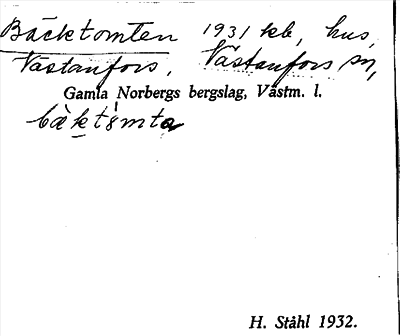 Bäcktomten 1931 kb, hus,
Västanfors, Västanfors sn,
Gamla Norbergs bergslag, Västm. l.
bäktåmta
H. Ståhl 1932.